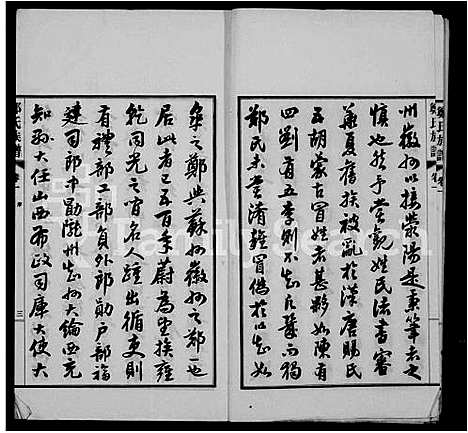 鄭氏族譜 卷一
州徽州以接滎陽是秉筆者之
慎也然予嘗觀姓氏法書審
華夏舊族被亂於漢唐賜氏
五胡蒙古冒姓者甚夥如陳有
四劉有五李則不知其幾而獨
鄭氏未嘗淆雜冒偽於以知如
皋之鄭與蘇州徽州之鄭一也
居此者已五百年蔚為望族雍
乾同光之間名人踵出循吏則
有禮部工部員外郎勛戶部福
建司郎中勛隴州知州大綸西充
知縣大任山西布政司庫大使大
鄭氏族譜 卷一
三
FamilySearch